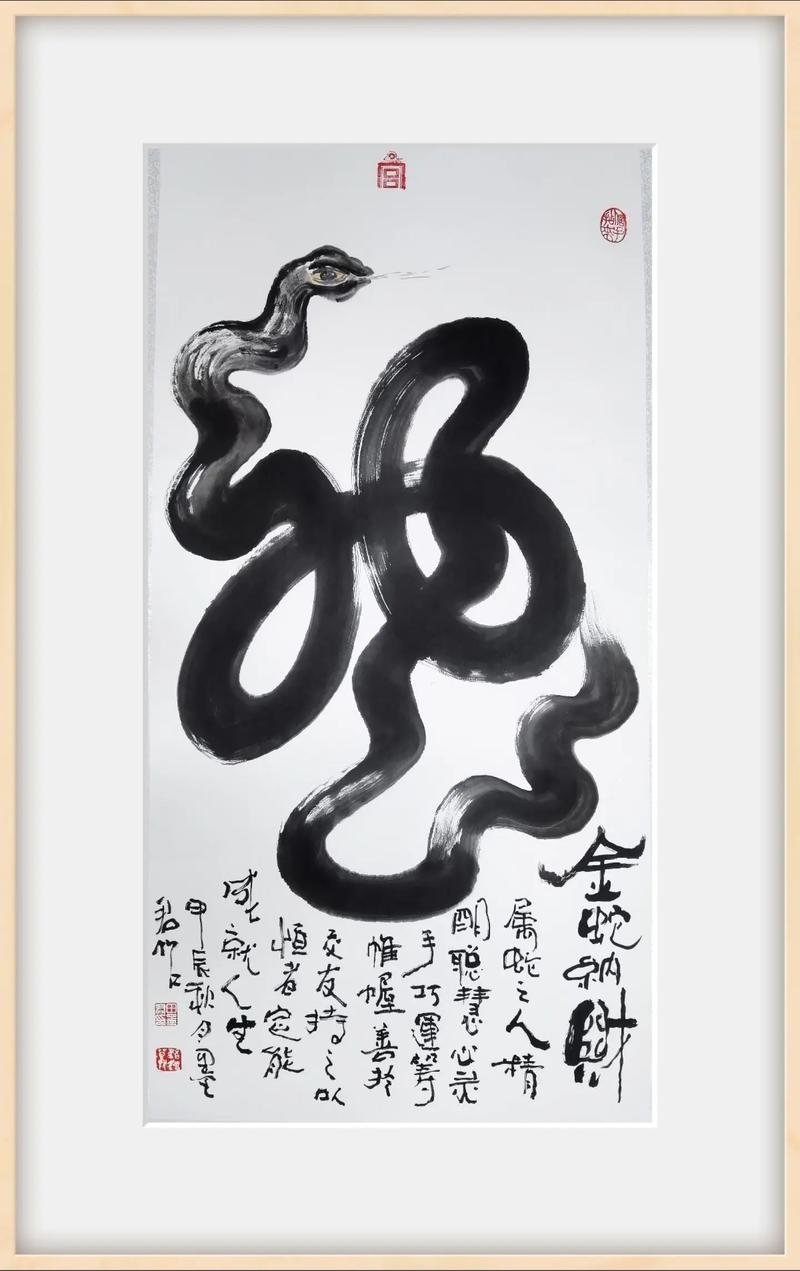 金蛇納財
属蛇之人精
明聪慧心灵
手巧運筹
帷幄善於
交友持之以
恒者定能
成就人生
甲辰秋月